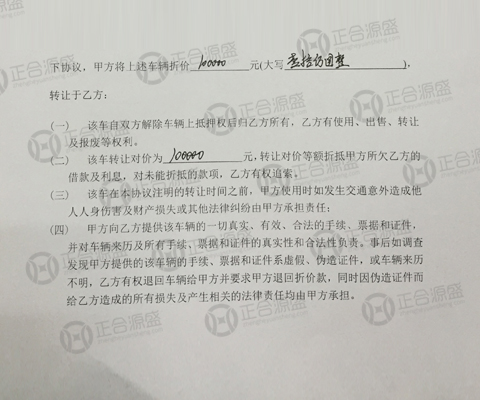 正合源盛
下协议，甲方将上述车辆折价 100000 元(大写 壹拾万圆整 )，
转让于乙方：
(一) 该车自双方解除车辆上抵押权后归乙方所有，乙方有使用、出售、转让
及报废等权利。
(二) 该车转让对价为 100000 元，转让对价等额折抵甲方所欠乙方的
借款及利息，对未能折抵的款项，乙方有权追索。
(三) 该车在本协议注明的转让时间之前，甲方使用时如发生交通意外造成他
人人身伤害及财产损失或其他法律纠纷由甲方承担责任；
(四) 甲方向乙方提供该车辆的一切真实、有效、合法的手续、票据和证件，
并对车辆来历及所有手续、票据和证件的真实性和合法性负责。事后如调查
发现甲方提供的该车辆的手续、票据和证件系虚假、伪造证件，或车辆来历
不明，乙方有权退回车辆给甲方并要求甲方退回折价款，同时因伪造证件而
给乙方造成的所有损失及产生相关的法律责任均由甲方承担。